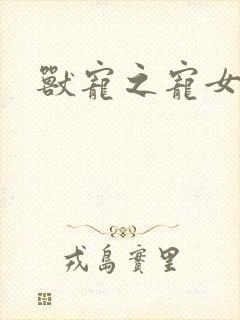 獸寵之寵女
戎島實里